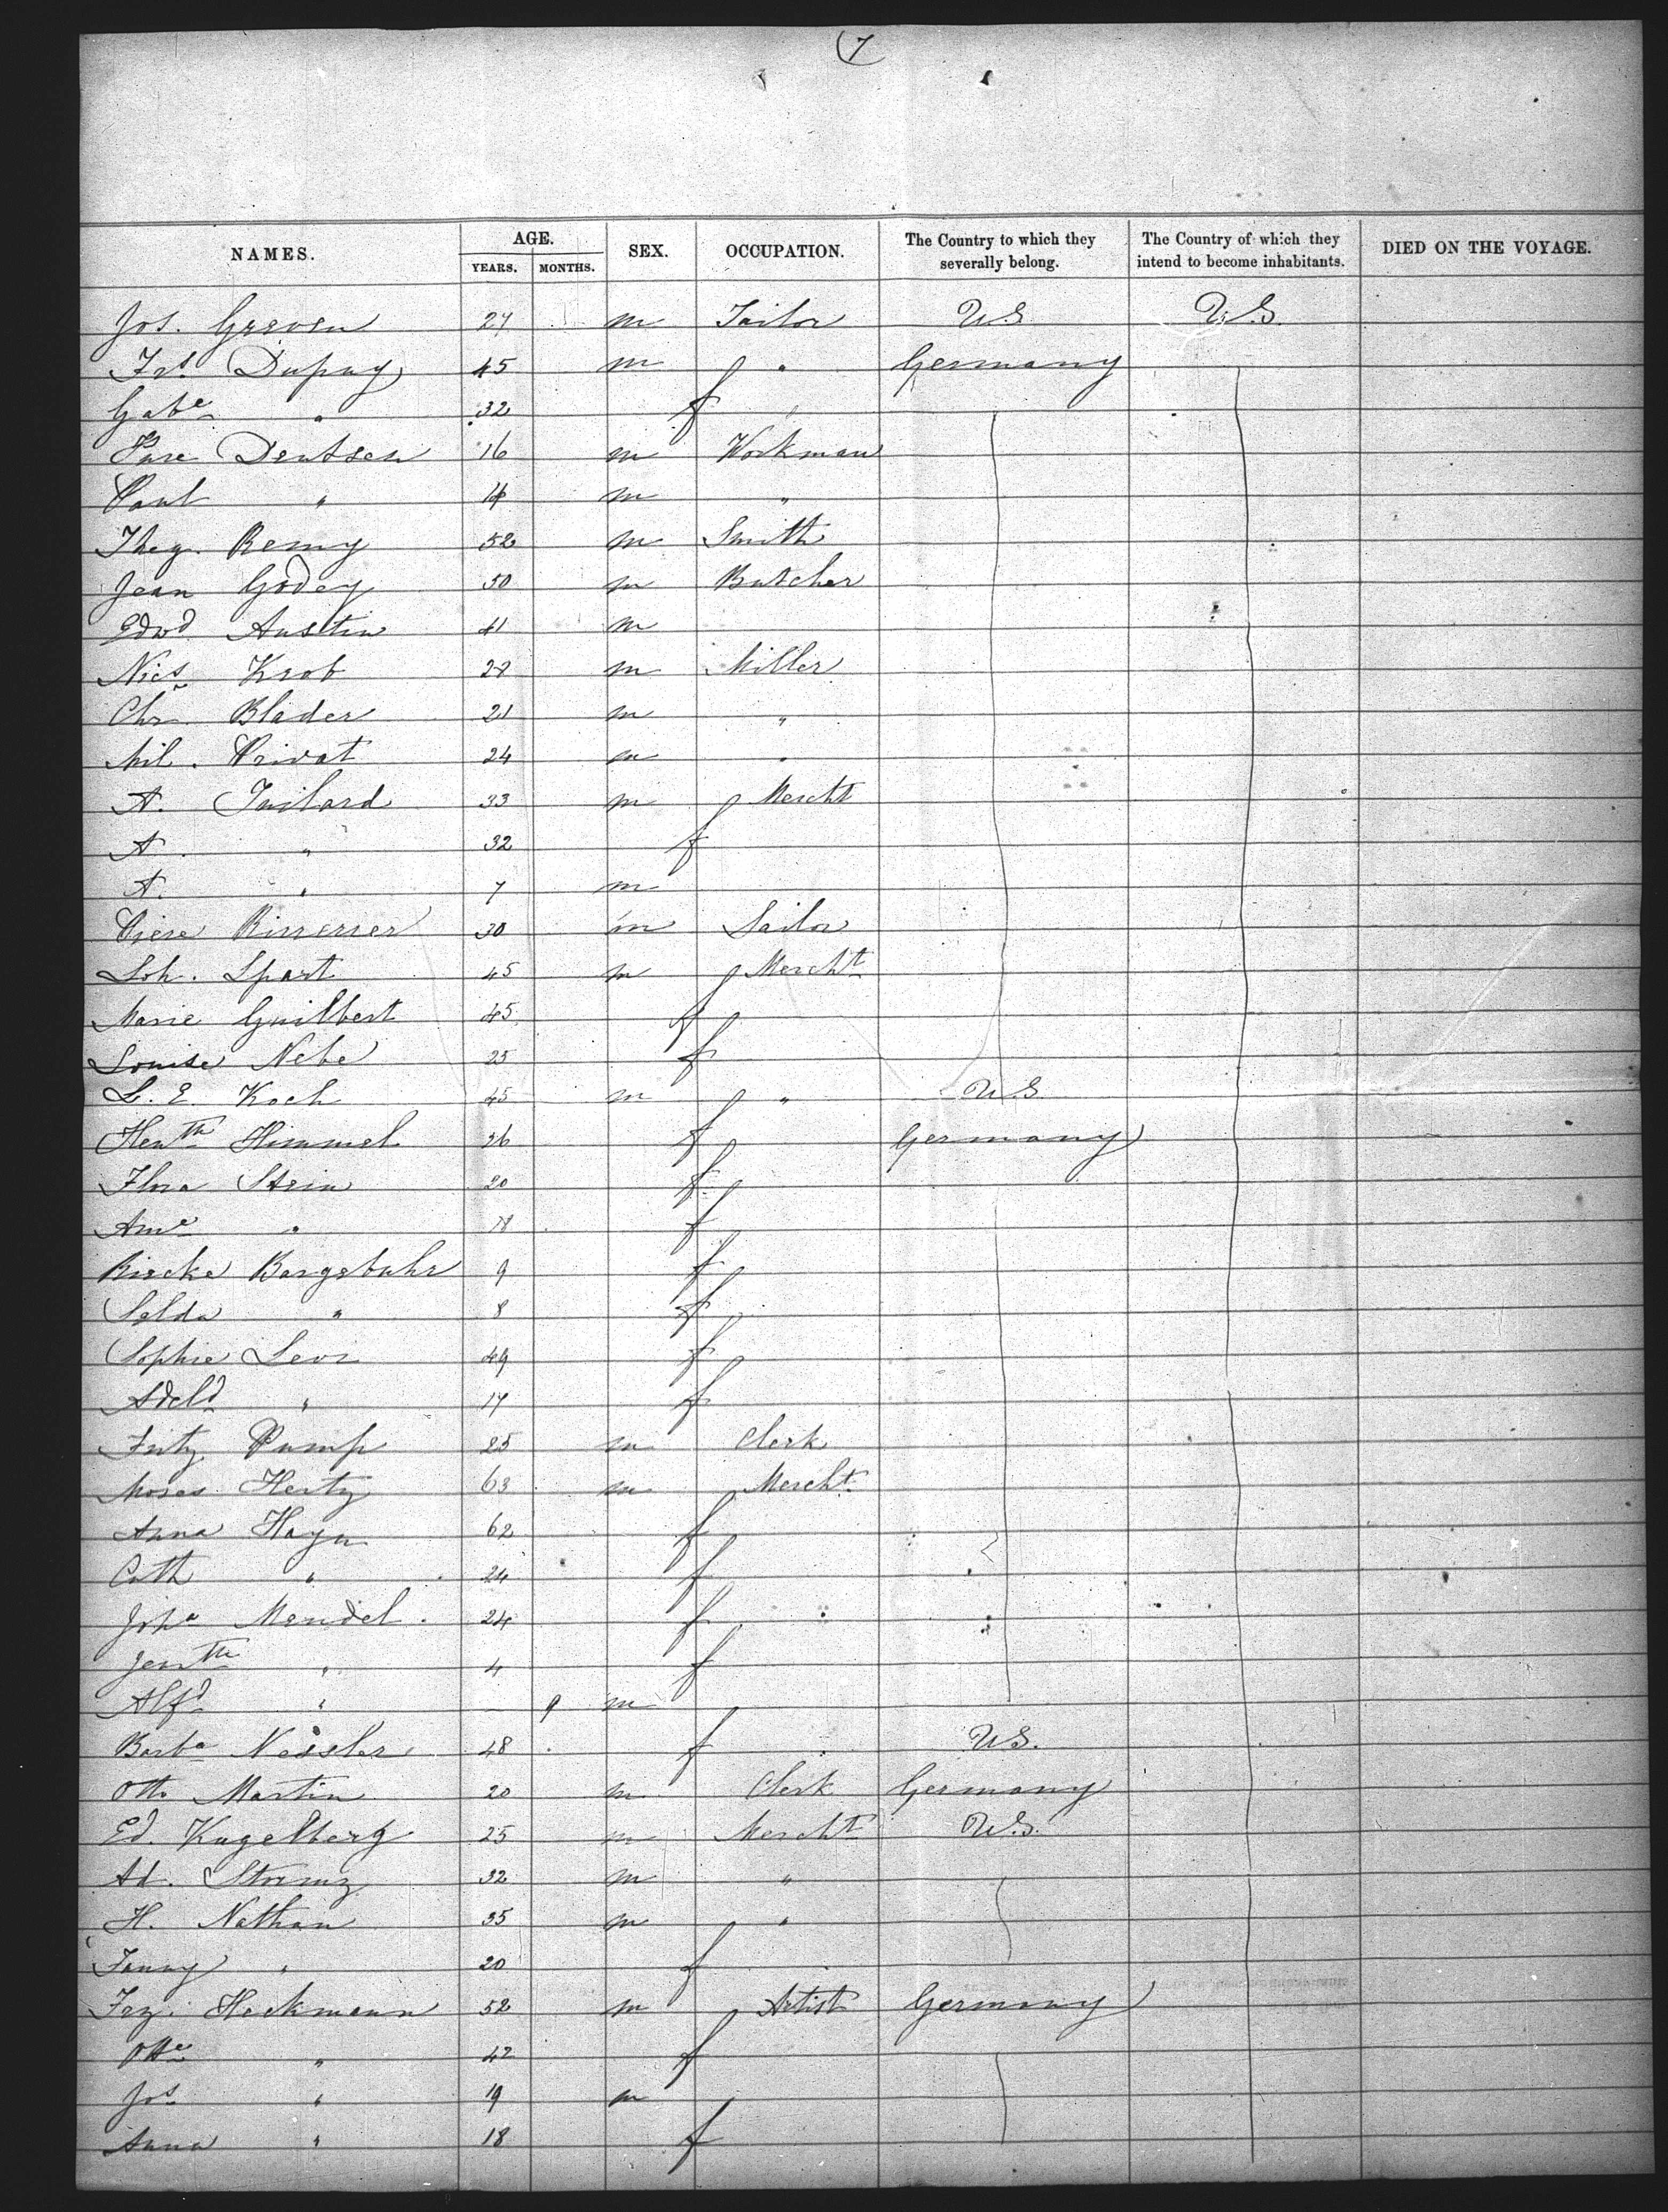 7
NAMES. AGE. SEX. OCCUPATION. The Country to which they severally belong. The Country of which they intend to become inhabitants. DIED ON THE VOYAGE.
YEARS. MONTHS.
Jos. Greven 27 m Tailor U.S. U.S.
Frs. Dupuy 45 m " Germany
Gabe " 32 f
Deutsch 16 m Workman
Paul " 14 m "
Theg. Remy 52 m Smith
Jean Godey 50 m Butcher
Edwd Austin 41 m
Nics Krob 28 m Miller
Chr. Blader 21 m "
Mil. Privat 24 m "
A. Juilard 33 m Mercht
A. " 32 f
A. " 7 m
30 m Sailor
Soh. Spart 45 m Mercht
Marie Guilbert 45 f
Louise Nebe 25 f
L. E. Koch 45 m " U.S
Henth Himmel 26 f Germany
Flora Stein 20 f
Ame " 18 f
Riecke Bargebuhr 9 f
Selda " 8 f
Sophie Levi 49 f
Adeld " 17 f
Fritz Pump 25 m Clerk
Moses Hertz 63 m Mercht
Anna Hayn 62 f
Cath " 24 f
Joha Mendel 24 f
Jentth " 4 f
Alfd " — 9 m
Barba Nessler 48 f U.S.
Otto Martin 20 m Clerk Germany
Ed. Kugelberg 25 m Mercht U.S.
Ad. 32 m "
H. Nathan 35 m "
Fanny " 20 f
Frz. Heckmann 52 m Artist Germany
Otte " 42 f
Jos " 19 m
Anna " 18 f